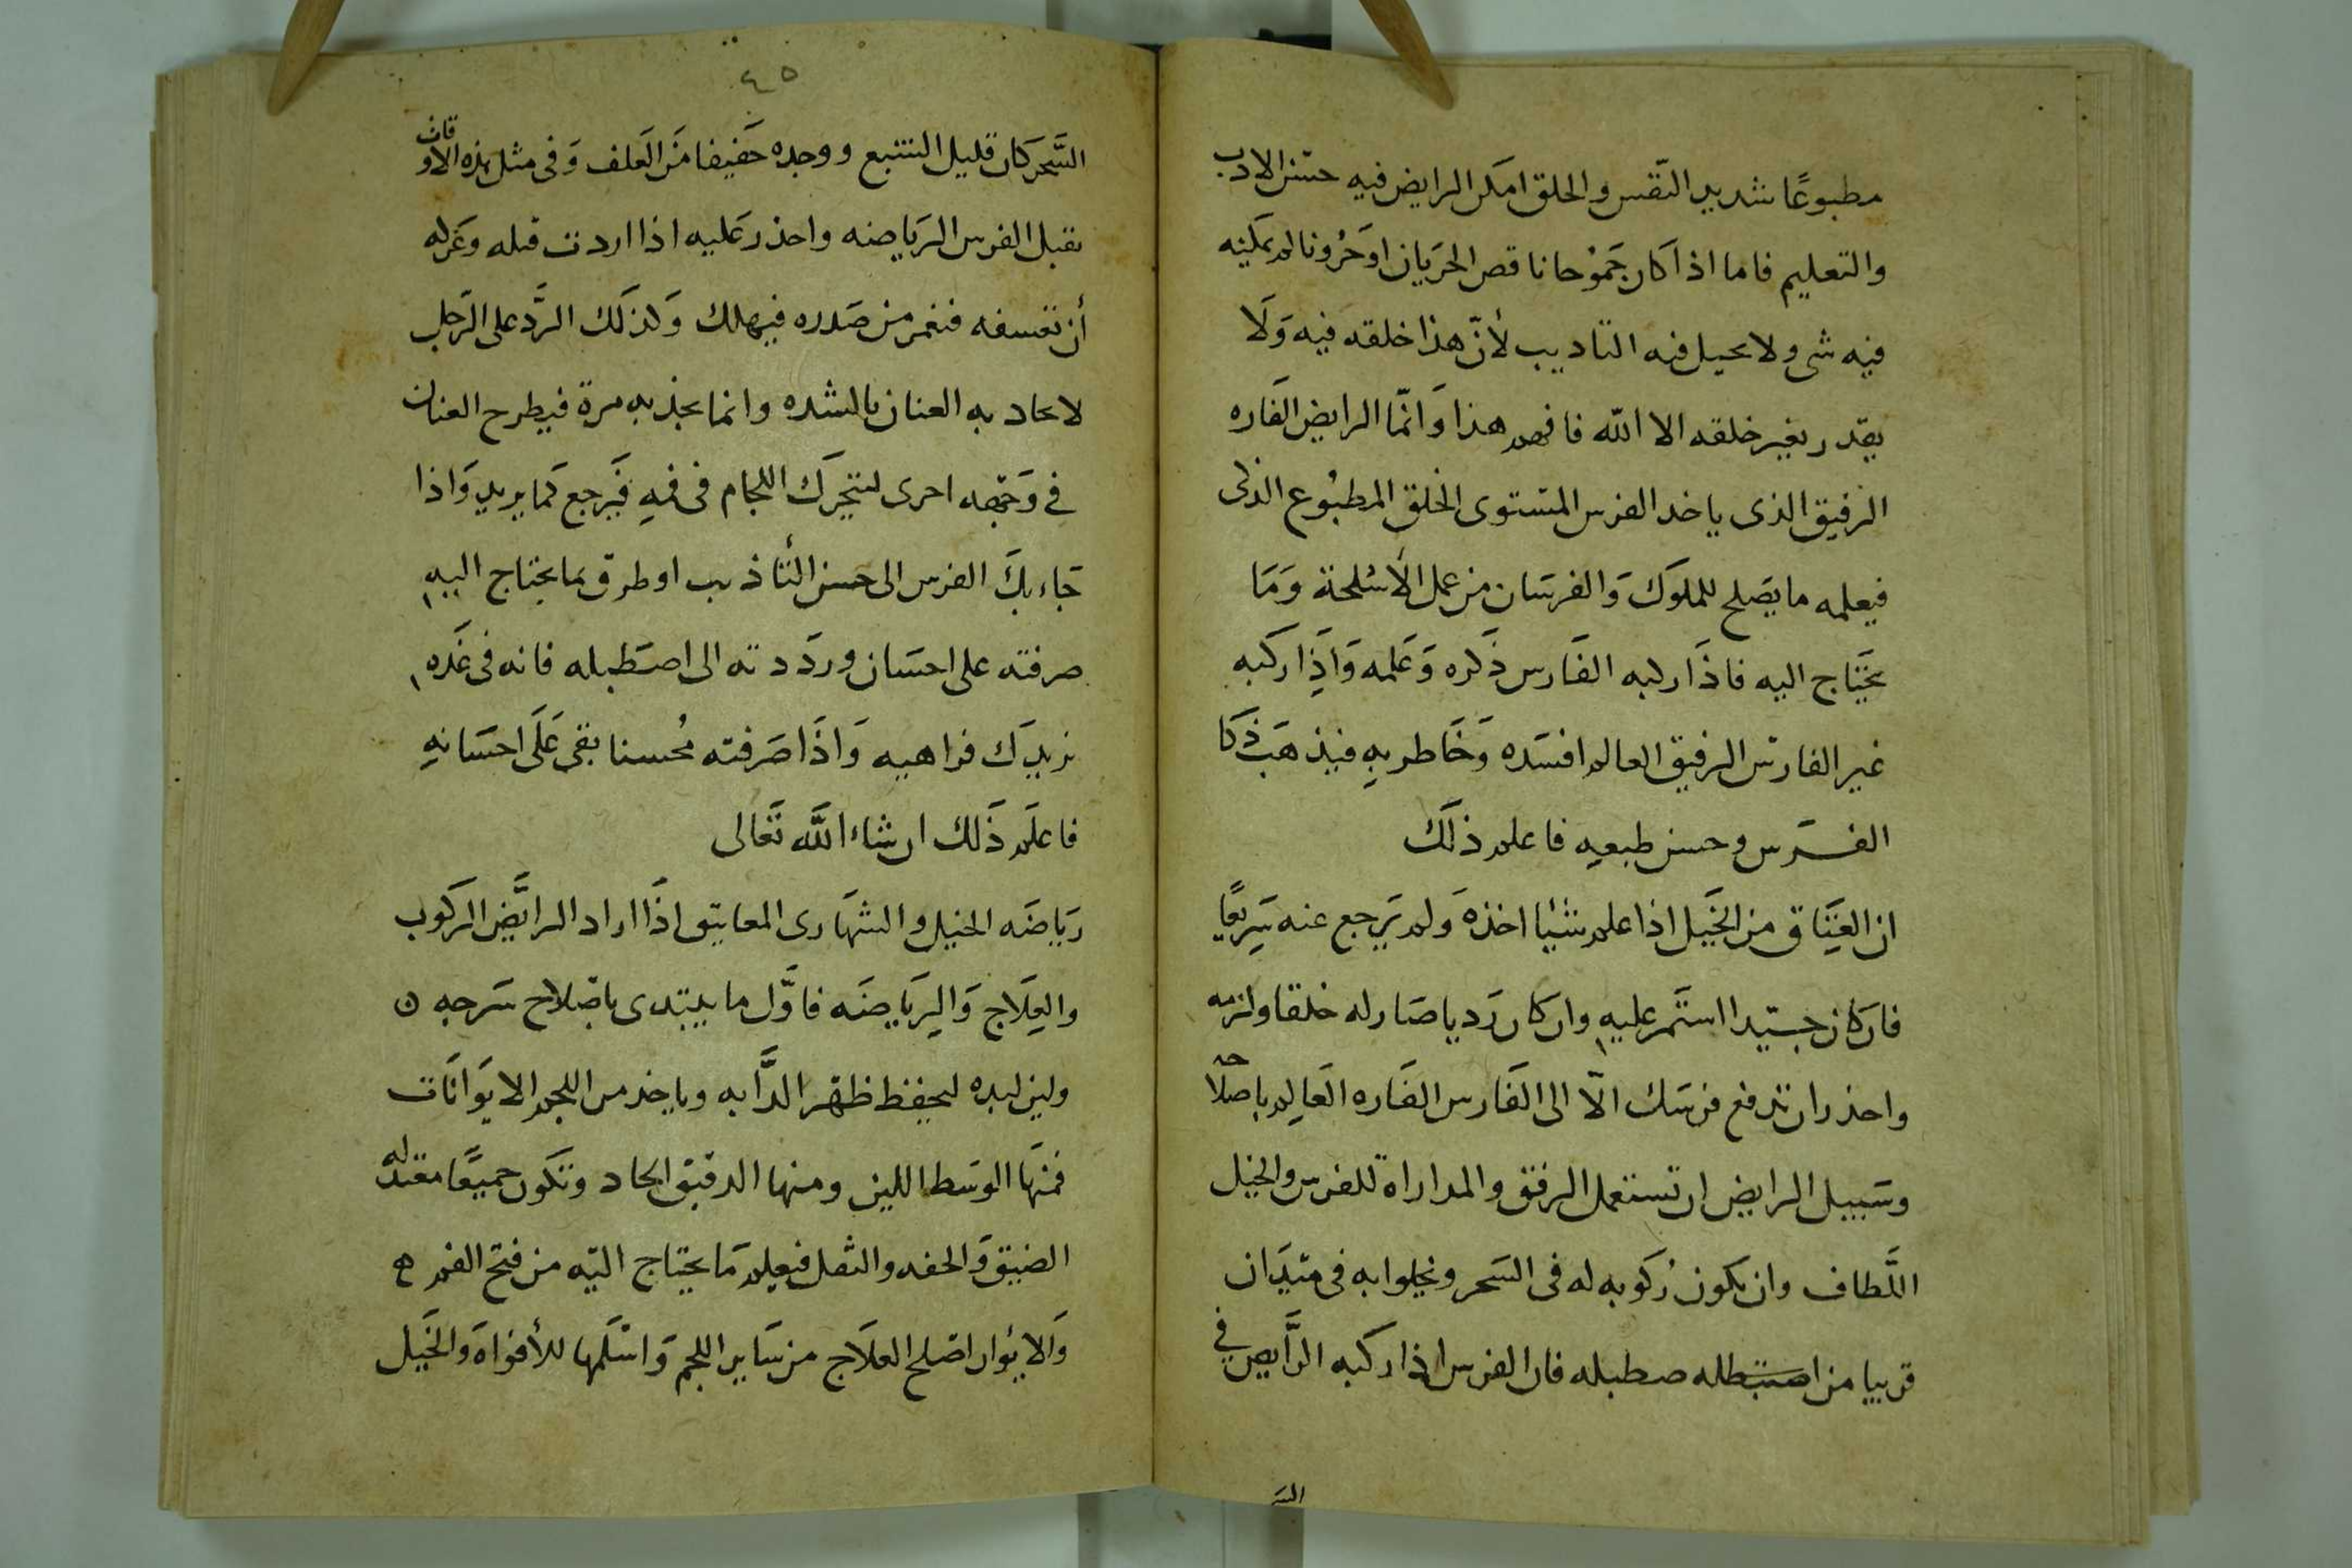 مطبوعًا شديد النّفس والخلق امكن الرايض فيه حسن الادب
والتعليم فاما اذا كان جَموُحا ناقص الجَريان اوحَرُونا لم يمكنه
فيه شى ولا يحيل فيه التاديب لأنّ هذا خلقه فيه وَلَا
يقدر يغير خلقه الا الله فافهم هذا وَانمّا الرايض الفَاره
الرفيق الذى ياخد الفرس المستوى الخلق المطبُوع الذكى
فيعلمه ما يصَلح للملوَك وَالفرسَان من عمل الأسْلحة وَمَا
يحَتاج اليه فاذَا ركبه الفَارس ذَكره وَعَلمه وَاذِا ركَبه
غير الفارسْ الرفيق العالم افسَده وَخَاطر بهِ فيذهَب ذَكَا
الفرَس وحسن طبعهِ فاعلم ذلَك
ان العِتَاق من الخَيل اذا علم شيْئا اخذهَ وَلم يَرجع عنه سَرِيعًا
فان كان جيّدا استَمر عليهِ وان كان رَديا صَار له خلقا ولزمه
واحذر ان تدفع فرسَك الّا الى الفَارس الفَاره العَالِم باصلاحه
وسَبيل الرايض ان تستعمل الرفق والمداراة للفرس والخيل
اللَّطاف وان يكون رُكَوبه له فى السَحر ويخلوا به فى ميَدان
قريبا من اصتبطله صطبله فان الفرس اذا ركبه الرَّايض في
السَّـ
٤٥
السَّحر كَان قليل التشبع ووجده خَفيفا منَ العَلف وَفى مثل هذه الاوقات
يقبل الفرس الرَياضه واحذر عَليه اذا اردت فتله وعَزله
أن تعسفه فتغمر من صَدره فيهلك وَكذلَك الرَّد على الرَجل
لا يحاد به العنان بالشده وانما يجذ به مرة فيطرح العنان
في وَجهه اخرى ليتحَرَك اللجام فى فيهِ فيَرجع كمَا يريد وَاذا
جَاء بكَ الفرس الى حسن التأذيب او طرق بما يحتاج اليهِ
صرفته على احسَان وردَدته الى اصَطبله فانه فى غَده
يزيدك فراهيه وَاذَا صَرفته مُحسنا بقى عَلَى احسَانهِ
فاعلَم ذَلك ان شاء اللَّه تَعَالى
ريَاضَه الخيل والشهَارى المعاتيق اذَا اراد الرايَّض الركَوب
والعِلَاج وَالِريَاضَه فاوَّل ما يبتدى باصْلاح سَرجه ن
ولين لبده ليحفظ ظهر الدَّابه وياخذ من اللجم الايوَانَات
فمنهَا الوَسَط اللين ومنها الدقيق الحاد وتكَون جميعًا معتدله
الضيق وَالخفه والثقل فيعلم مَا يحتاج اليَه من فتح الفم ه
وَالايوُان اصْلح العلَاج من سَاير اللجم وَاسْلمَها للأفواهَ وَالخَيل